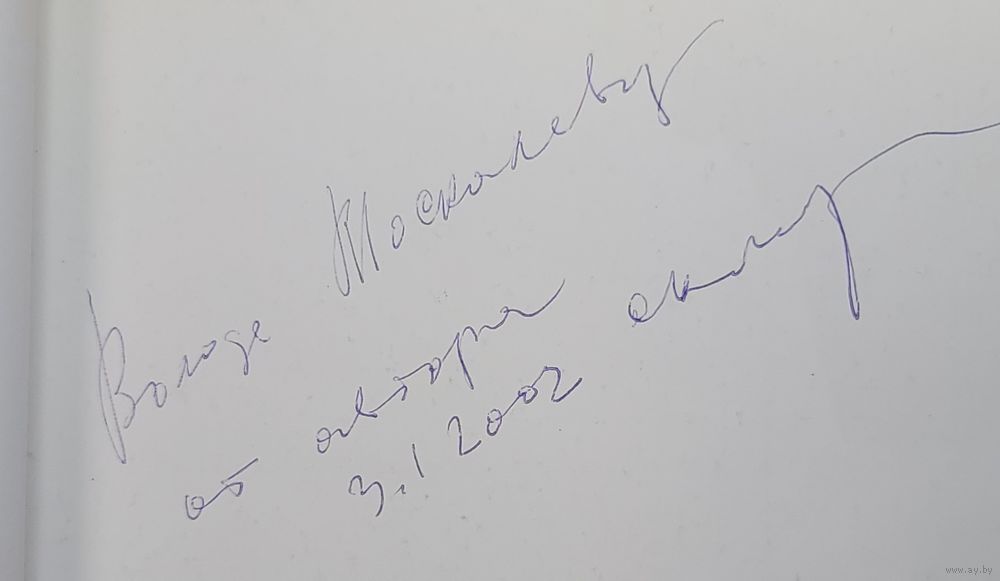 Володе Москалеву
от автора
3.1 2002
www.ay.by